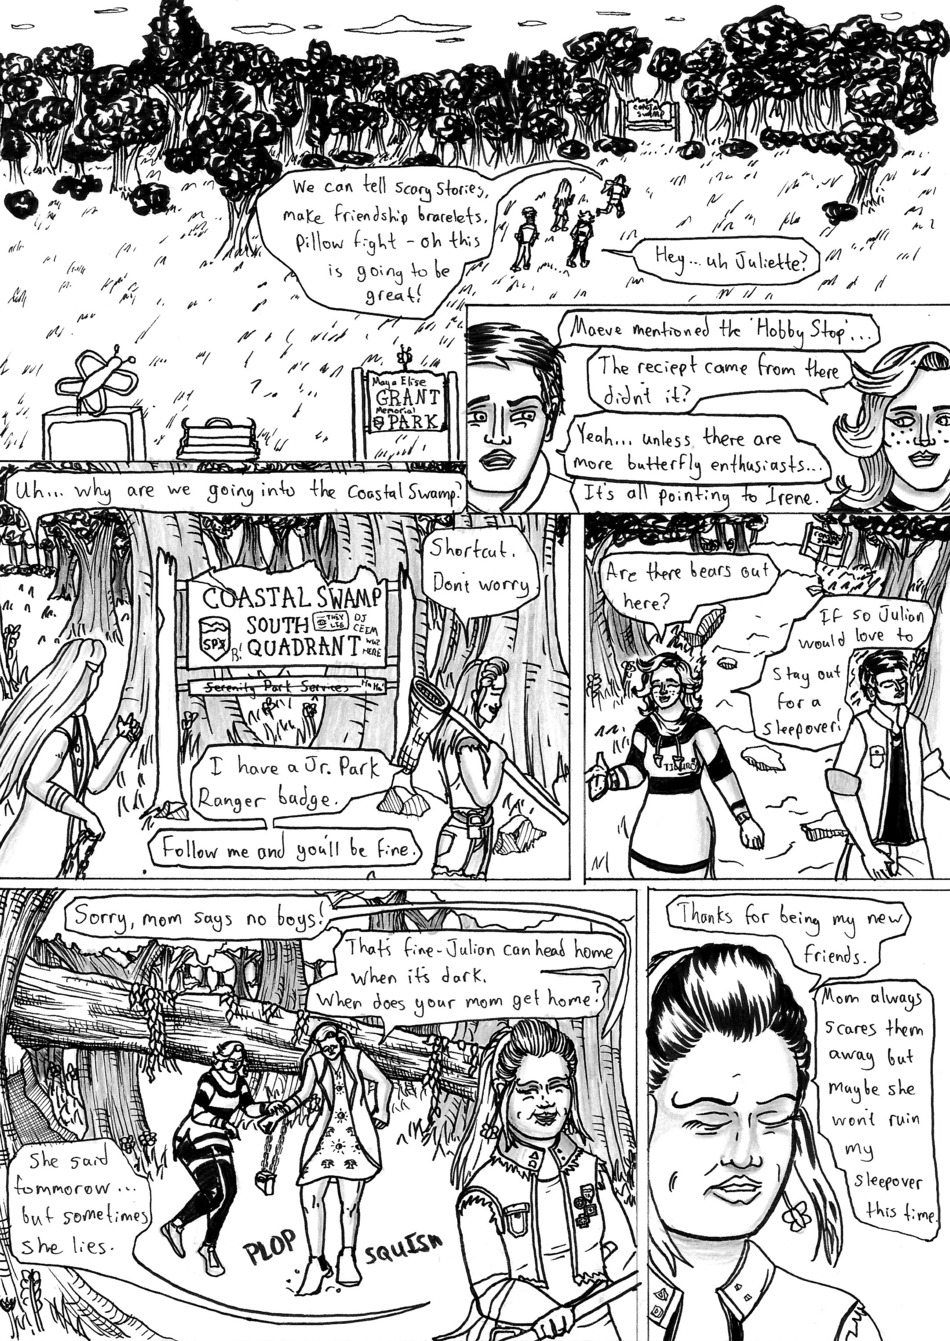 Coastal
Swamp
We can tell scary stories,
make friendship bracelets,
Pillow fight - oh this
is going to be
great!
Hey... uh Juliette?
Maya Elise
GRANT
Memorial
PARK
Maeve mentioned the 'Hobby Stop'...
The reciept came from there
didn't it?
Yeah... unless there are
more butterfly enthusiasts...
It's all pointing to Irene.
Uh... why are we going into the Coastal Swamp?
COASTAL SWAMP
SOUTH
QUADRANT
SPX
THEY
LIE
DJ
CEEM
WUZ
HERE
Serenity Park Services
Shortcut.
Don't worry
I have a Jr. Park
Ranger badge.
Follow me and you'll be fine.
Are there bears out
here?
If so Julian
would love to
stay out
for a
sleepover!
Sorry, mom says no boys!
That's fine-Julian can head home
when it's dark.
When does your mom get home?
She said
tommorow...
but sometimes
she lies.
PLOP
SQUISH
Thanks for being my new
friends.
Mom always
scares them
away but
maybe she
won't ruin
my
sleepover
this time.